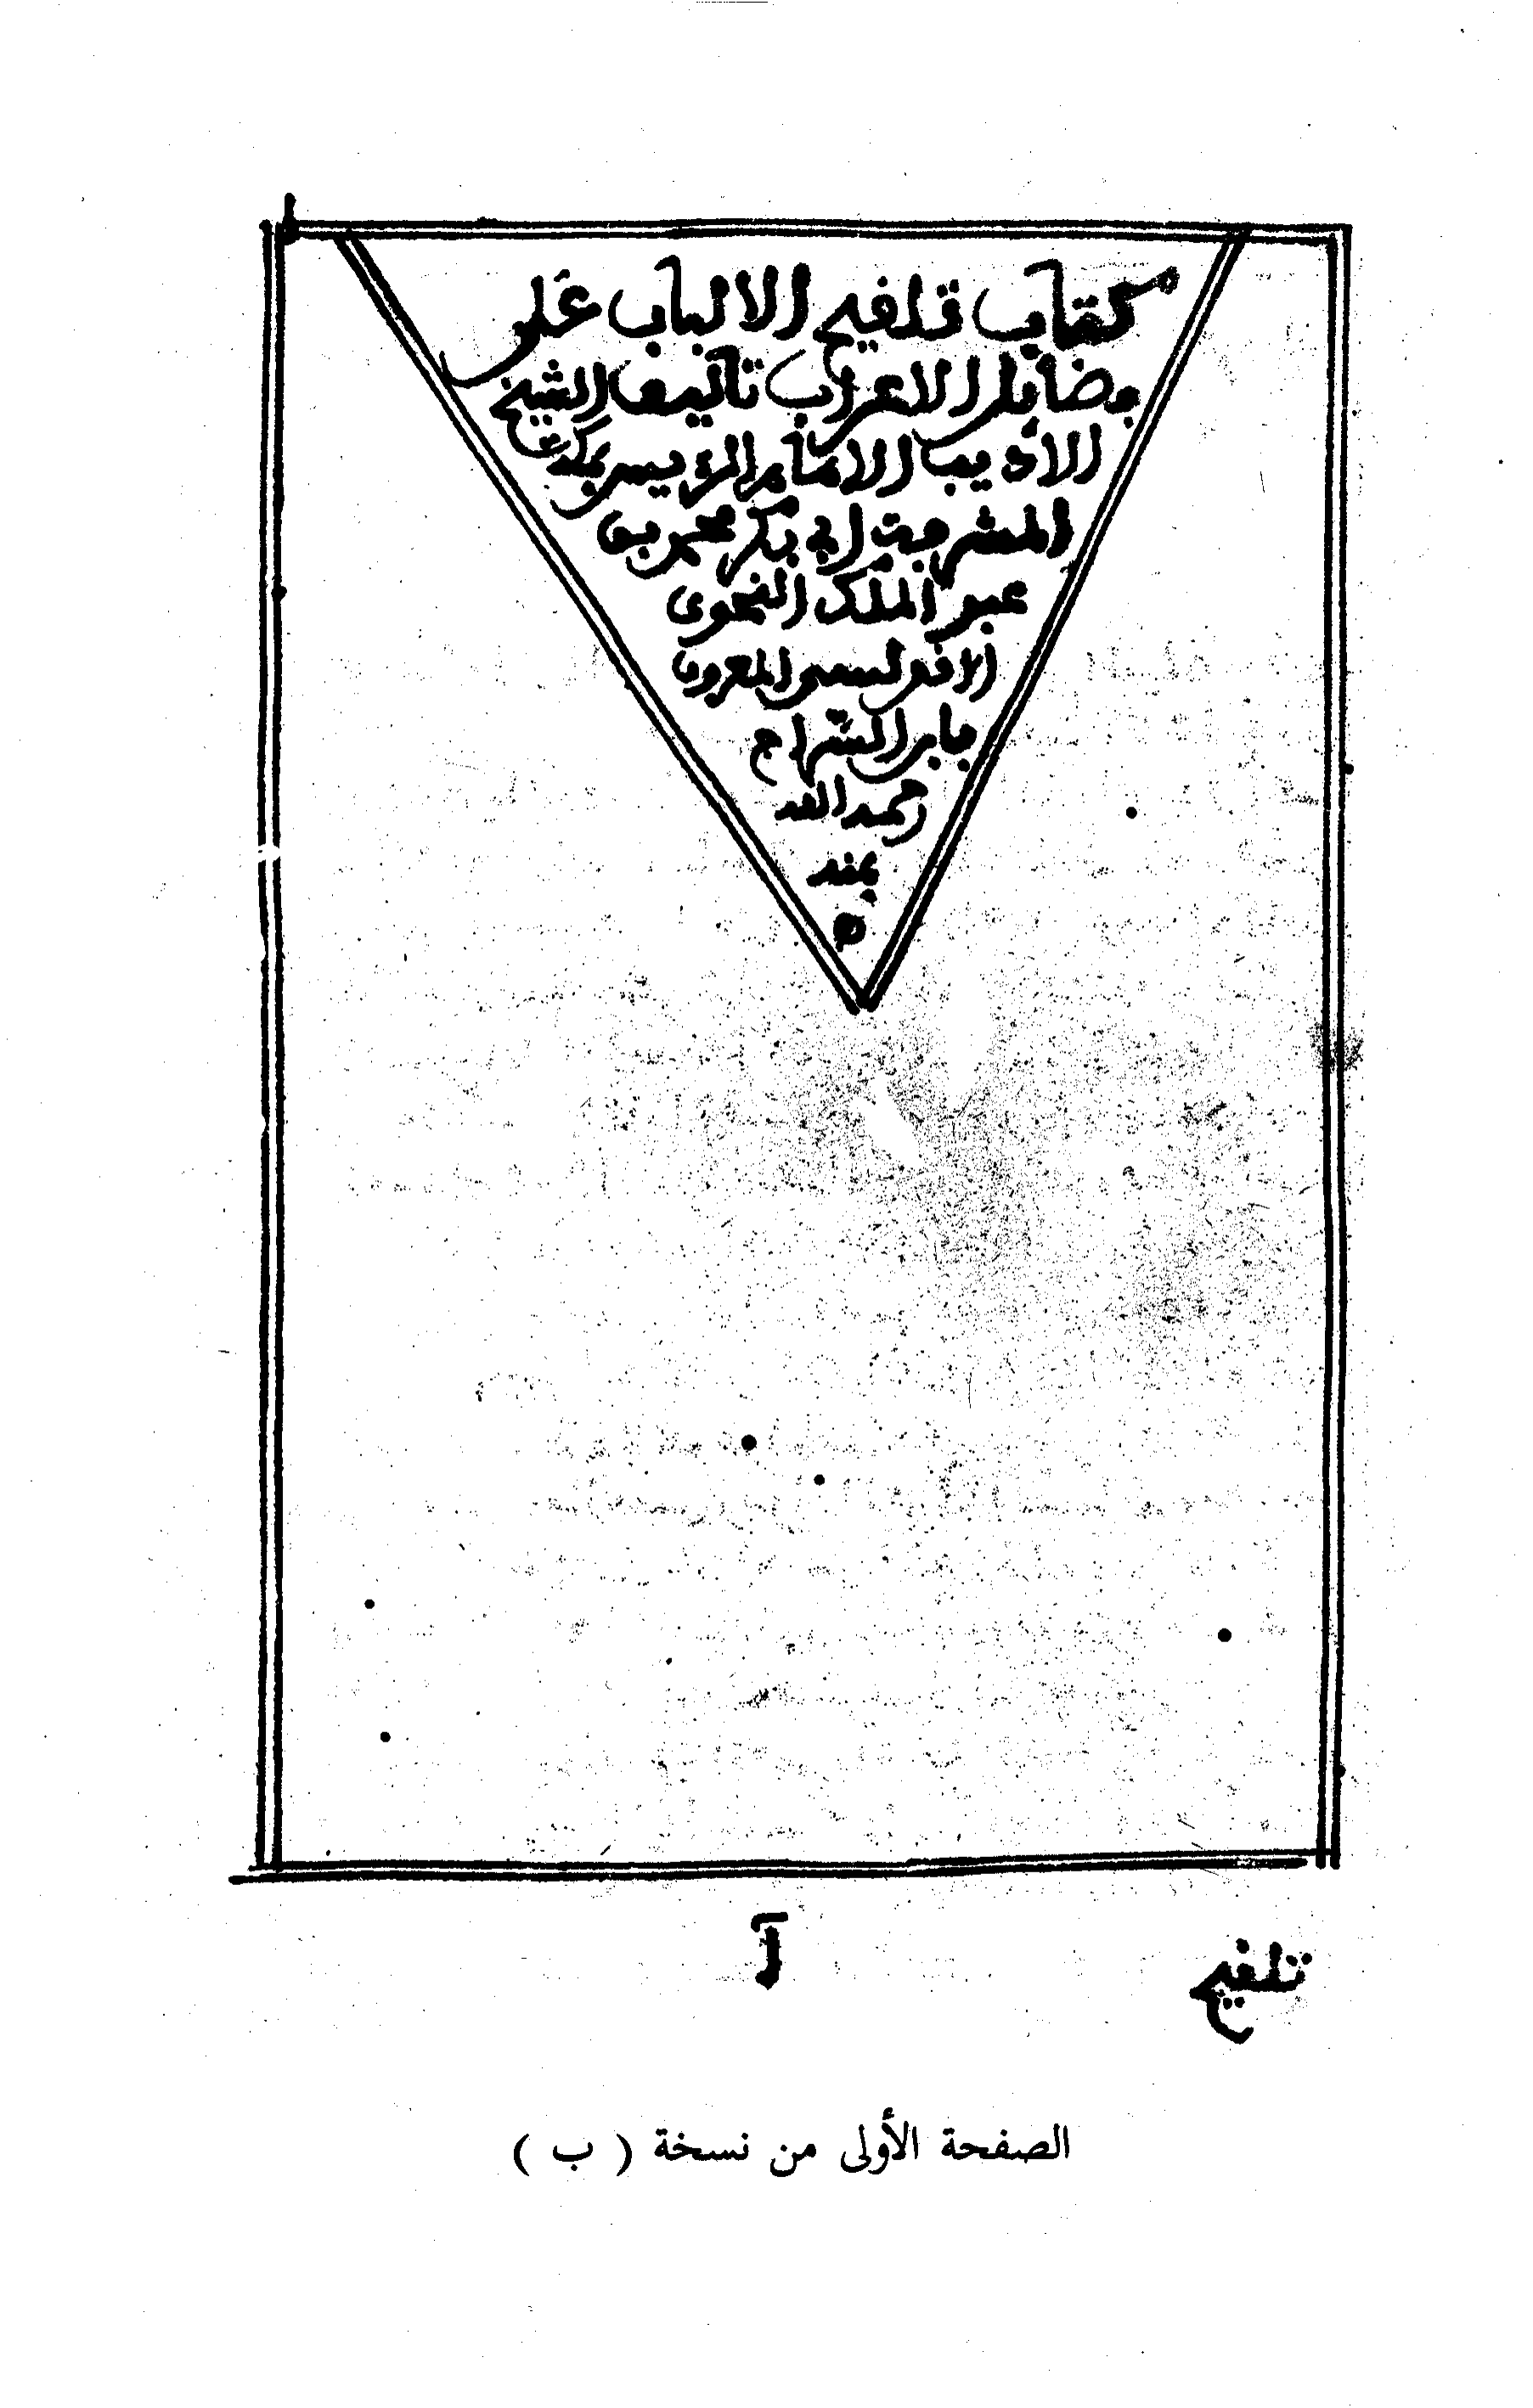 كتاب تلقيح الالباب على
فضايل الاعراب تاليف الشيخ
الاديب الامام الرييس بمكة
المشرفة ابي بكر محمد بن
عبد الملك النحوى
الاندلسى المعروف
بابن السراج
رحمه الله
بمنه
ه
تلقيح
آ
الصفحة الأولى من نسخة ( ب )